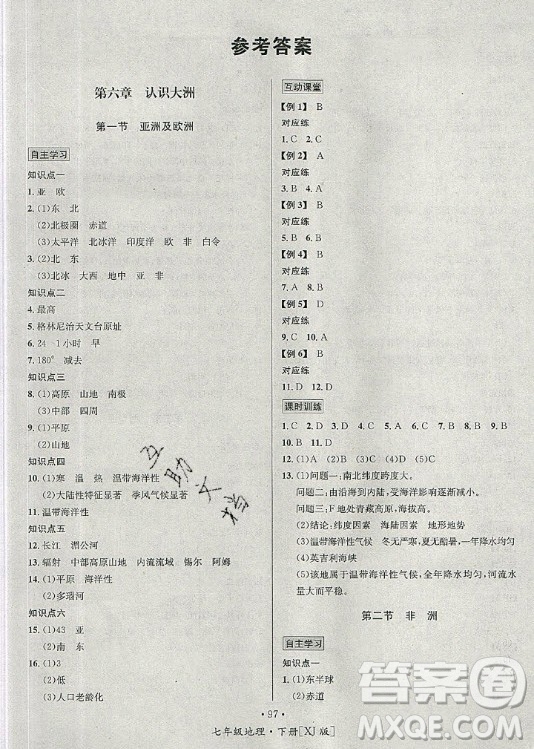 参考答案
第六章 认识大洲
第一节 亚洲及欧洲
自主学习
知识点一
1. 亚 欧
2. (1)东 北
(2)北极圈 赤道
(3)太平洋 北冰洋 印度洋 欧 非 白令
3. (1)北 东
(2)北冰 大西 地中 亚 非
知识点二
4. 最高
5. 格林尼治天文台原址
6. 24 1小时 早
7. 180° 减去
知识点三
8. (1)高原 山地 南极
(3)中部 四周
9. (1)平原
(2)山地
知识点四
10. (1)寒 温 热 温带海洋性
(2)大陆性特征显著 季风气候显著
11. 温带海洋性
知识点五
12. 长江 湄公河
13. 辐射 中部高原山地 内流流域 锡尔 阿姆
14. (1)平原 海洋性
(2)多瑙河
知识点六
15. (1)43 亚
(2)南 东
16. (1)3
(2)低
(3)人口老龄化
互动课堂
【例1】 B
对应练
1. C 2. C
【例2】 D
对应练
3. B 4. A
【例3】 B
对应练
5. D 6. A
【例4】 B
对应练
7. A 8. C
【例5】 C
对应练
9. C 10. C
【例6】 B
对应练
11. D 12. D
课时训练
1. C 2. D 3. D 4. C 5. D 6. D 7. C 8. D 9. D
10. B 11. D 12. (1)A (2)C (3)A
13. (1)问题一:南北纬度跨度大。
问题二:由沿海到内陆,受海洋的影响逐渐减小。
问题三:F地处青藏高原,海拔高。
(2)结论:纬度因素 海陆因素 地形地势
(3)温带海洋性气候 冬无严寒,夏无酷暑,一年降水均匀
(4)英吉利海峡
(5)该地属于温带海洋性气候,全年降水均匀,河流水
量大而平稳。
第二节 非 洲
自主学习
知识点一
1. (1)东半球
(2)赤道
互助文档
答案圈
MXQE.COM
·97·
七年级地理·下册[XJ版]